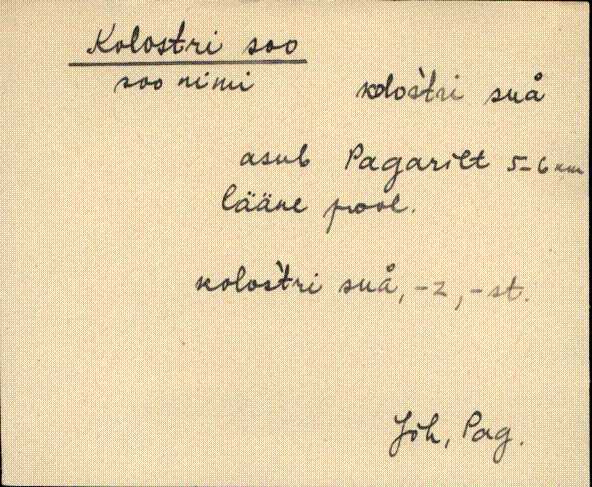 Kolostri soo
soo nimi kolos̀tri suå
asub Pagarilt 5-6 km
lääne pool.
kolos̀tri suå, -z, -st.
Jõh, Pag.